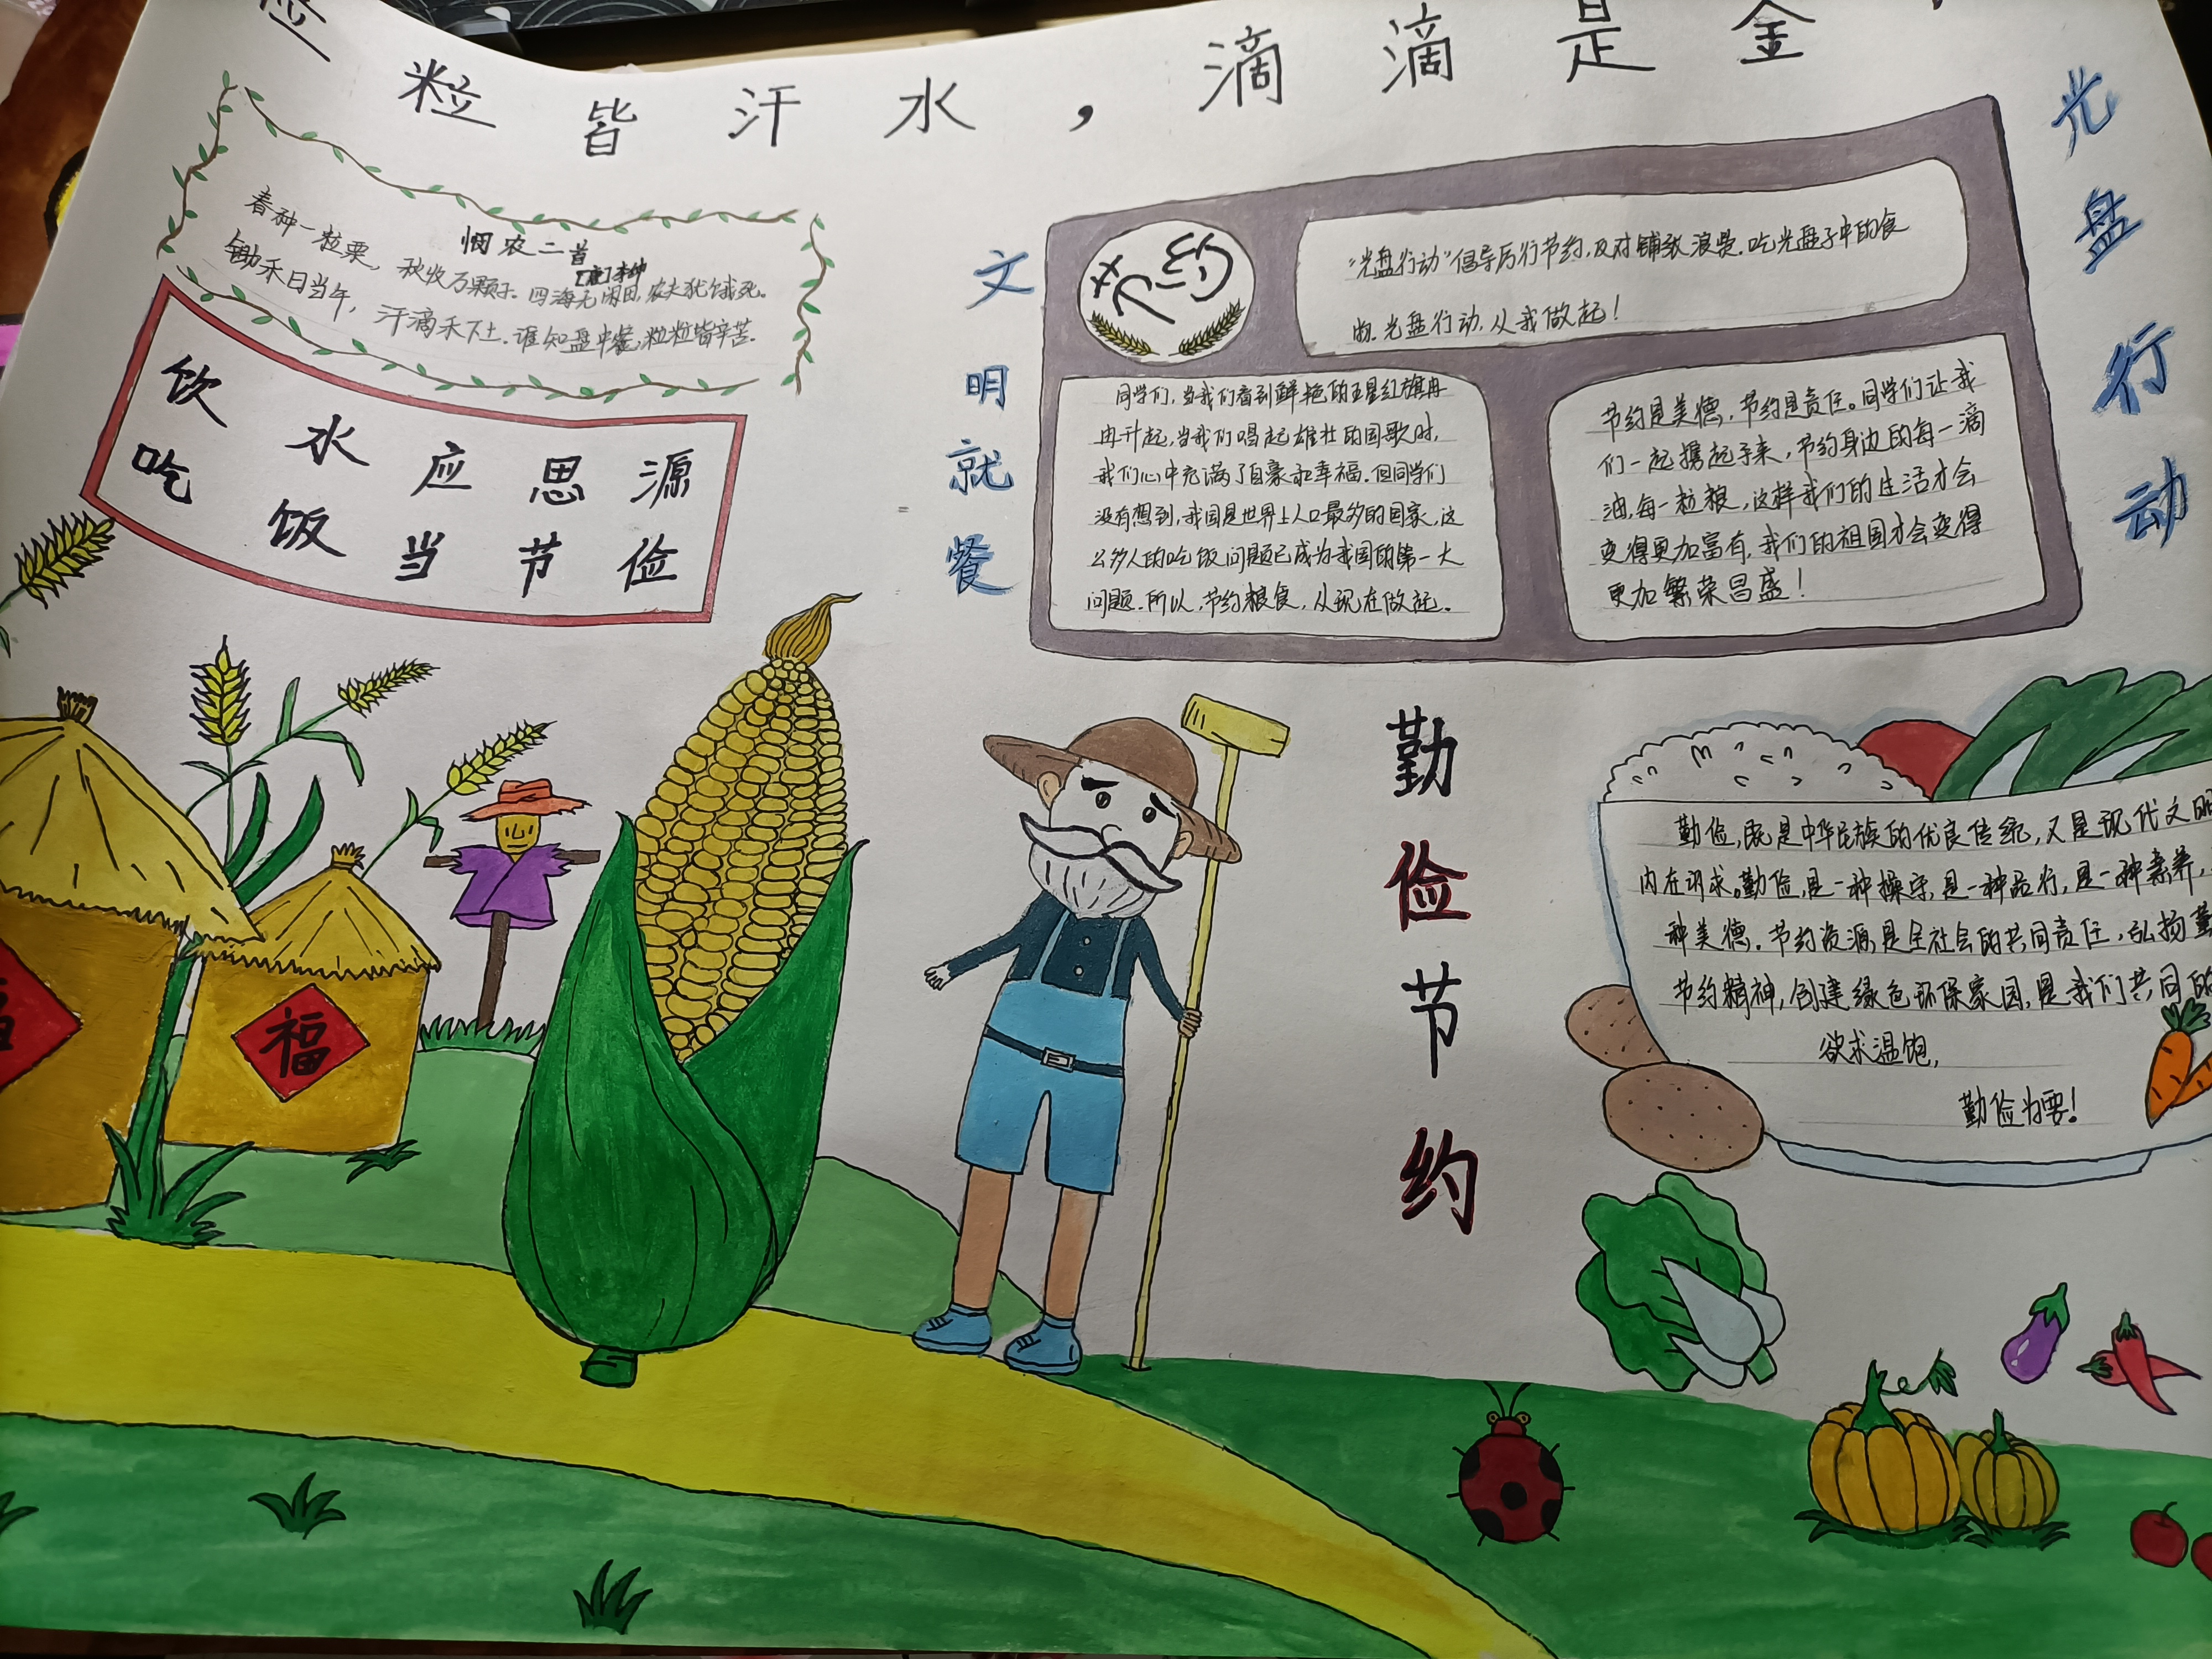 粒粒皆汗水，滴滴是金
悯农二首
[唐]李绅
春种一粒粟，秋收万颗子。四海无闲田，农夫犹饿死。
锄禾日当午，汗滴禾下土。谁知盘中餐，粒粒皆辛苦。
饮水应思源
吃饭当节俭
文明就餐
节约
“光盘行动”倡导厉行节约，反对铺张浪费，吃光盘子中的食
物。光盘行动，从我做起！
同学们，当我们看到鲜艳的五星红旗冉
冉升起，当我们唱起雄壮的国歌时，
我们心中充满了自豪和幸福。但同学们
没有想到，我国是世界上人口最多的国家，这
么多人的吃饭问题已成为我国的第一大
问题。所以，节约粮食，从现在做起。
节约是美德，节约是责任。同学们让我
们一起携起手来，节约身边的每一滴
油，每一粒粮，这样我们的生活才会
变得更加富有，我们的祖国才会变得
更加繁荣昌盛！
光盘行动
勤俭节约
勤俭，既是中华民族的优良传统，又是现代文明
内在诉求。勤俭，是一种操守，是一种品行，是一种素养，
种美德。节约资源是全社会的共同责任，弘扬
节约精神，创建绿色环保家园，是我们共同的
欲求温饱，
勤俭为要！
福
福